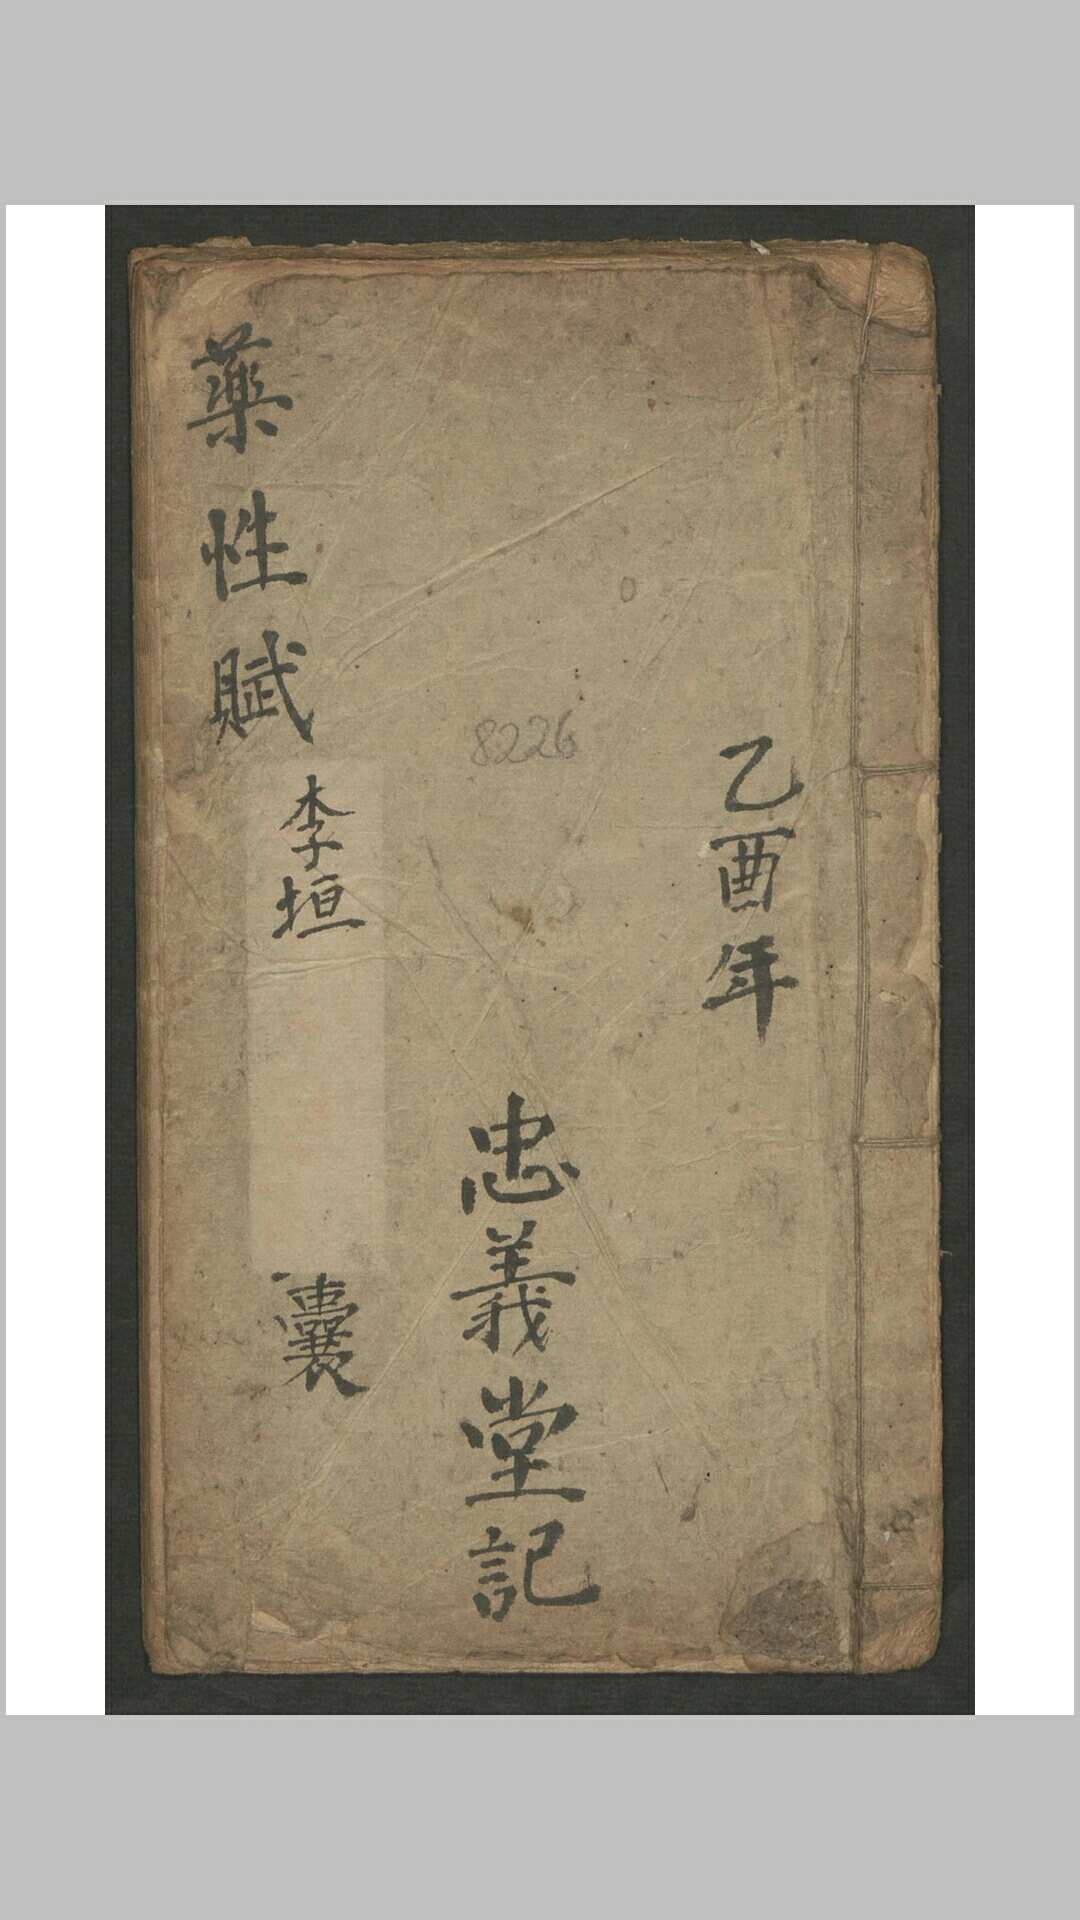 乙酉年
忠義堂記
8226
藥性賦
李垣
囊